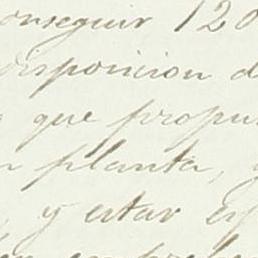 conseguir 120
disposicion d
que propu
planta, y
y estar en